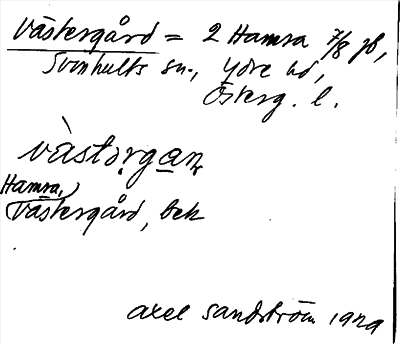 Västergård = 2 Hamra 7/8 gh,
Svinhults sn., Ydre hd,
Österg. l.
vàstọrgan
Hamra,
Västergård, bek
Axel Sandström 1929